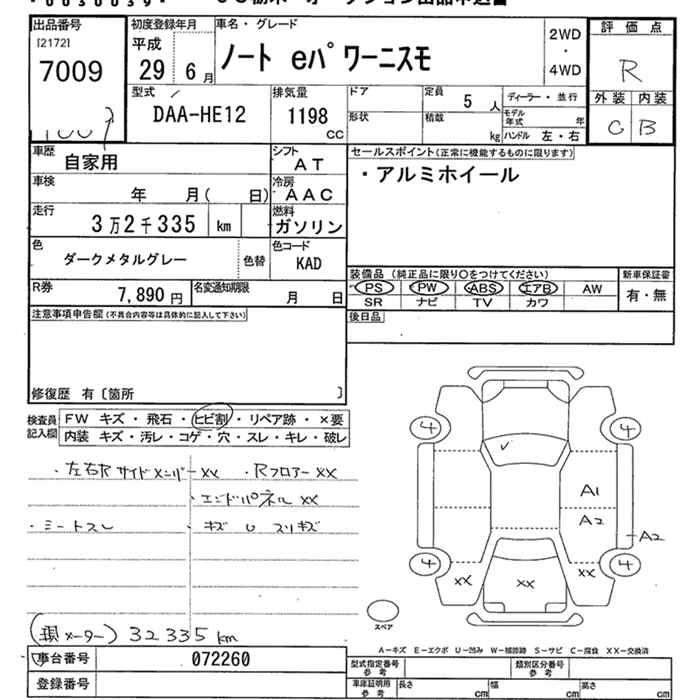 出品番号
[2172]
7009
初度登録年月
平成
29年 6月
車名・グレード
ノート eパワーニスモ
2WD
・
4WD
評価点
R
外装 内装
C B
型式
DAA-HE12
排気量
1198
CC
ドア
形状
定員 5 人
積載 kg
ディーラー・並行
モデル年式 年
ハンドル 左・右
車歴
自家用
シフト
AT
車検
年 月( 日)
冷房
AAC
走行
3万2千335 km
燃料
ガソリン
色
ダークメタルグレー
色替
色コード
KAD
R券
7,890円
名変通知期限
月 日
セールスポイント(正常に機能するものに限ります)
・アルミホイール
装備品(純正品に限り○をつけてください)
PS PW ABS エアB AW
SR ナビ TV カワ
新車保証書
有・無
後日品
注意事項申告欄(不具合内容等は具体的に記入して下さい)
修復歴 有〔箇所 〕
検査員記入欄
FW キズ・飛石・ヒビ割・リペア跡・×要
内装 キズ・汚レ・コゲ・穴・スレ・キレ・破レ
・左右Rサイドメンバー××
・Rフロアー××
・エンドパネル××
・シートスレ
・キズ U スリキズ
4 4
A1
A2
A2
4 4
×× ×× ××
スペア
(現メーター) 32335km
A-キズ E-エクボ U-凹み W-補修跡 S-サビ C-腐食 XX-交換済
車台番号
072260
登録番号
型式指定番号
参考
類別区分番号
参考
車庫証明用
参考
長さ cm
幅 cm
高さ cm